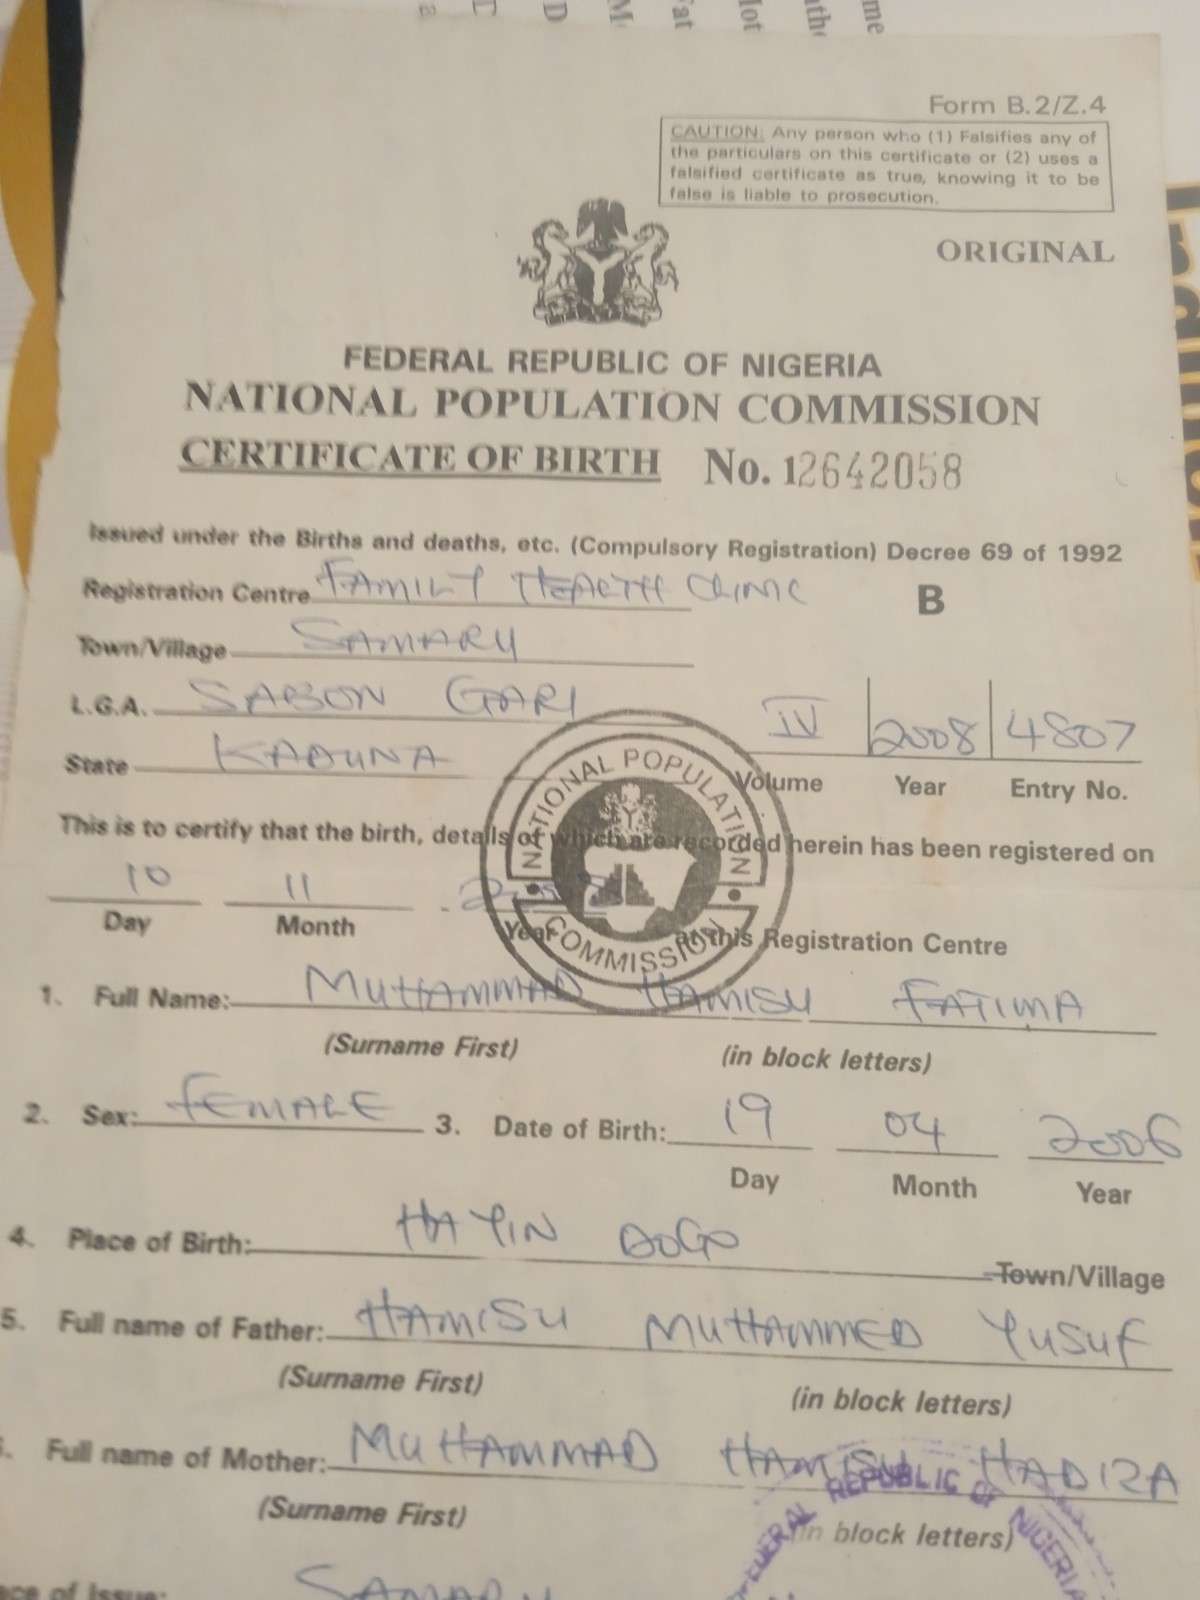 Form B.2/Z.4
CAUTION: Any person who (1) Falsifies any of
the particulars on this certificate or (2) uses a
falsified certificate as true, knowing it to be
false is liable to prosecution.
ORIGINAL
FEDERAL REPUBLIC OF NIGERIA
NATIONAL POPULATION COMMISSION
CERTIFICATE OF BIRTH No. 12642058
Issued under the Births and deaths, etc. (Compulsory Registration) Decree 69 of 1992
Registration Centre FAMILY HEALTH CLINIC B
Town/Village SAMARU
L.G.A. SABON GARI
IV 2008 4807
State KADUNA
Volume Year Entry No.
NATIONAL POPULATION COMMISSION
This is to certify that the birth, details of which are recorded herein has been registered on
10 11
Day Month Year at this Registration Centre
1. Full Name: MUHAMMAD HAMISU FATIMA
(Surname First) (in block letters)
2. Sex: FEMALE 3. Date of Birth: 19 04 2006
Day Month Year
4. Place of Birth: HAYIN DOGO Town/Village
5. Full name of Father: HAMISU MUHAMMED YUSUF
(Surname First) (in block letters)
Full name of Mother: MUHAMMAD HAMISU HADIZA
(Surname First) (in block letters)
FEDERAL REPUBLIC OF NIGERIA
of Issue: SAMARU